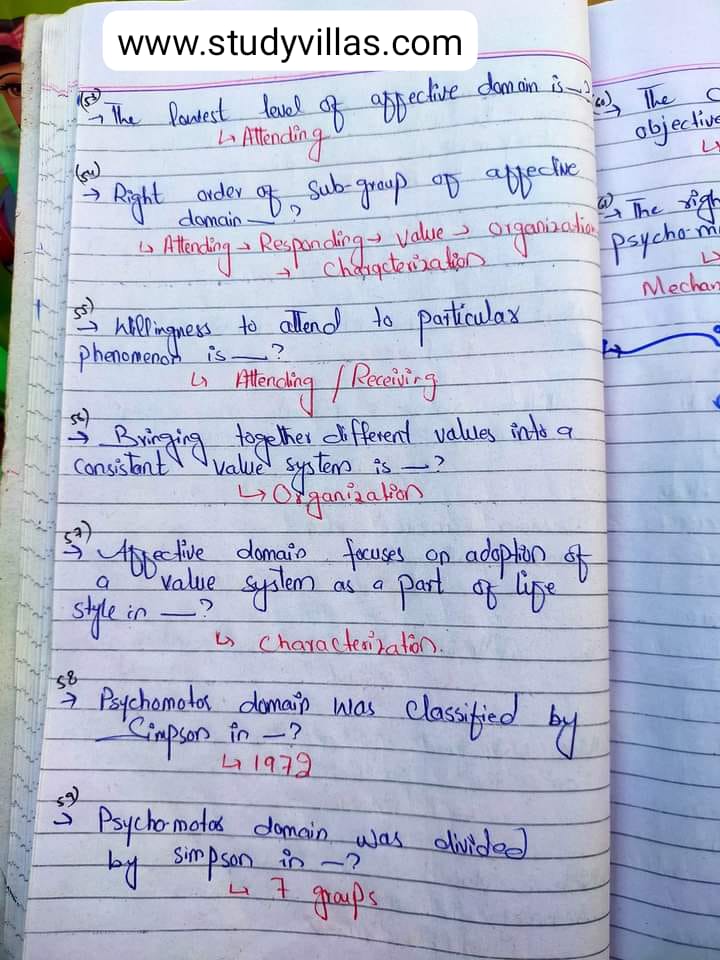 www.studyvillas.com
(53)
→ The lowest level of affective domain is —?
↳ Attending
(54)
→ Right order of sub-group of affective
domain —?
↳ Attending → Responding → value → Organization
→ Characterization
55)
→ Willingness to attend to particular
phenomenon is —?
↳ Attending / Receiving
56)
→ Bringing together different values into a
consistant value system is —?
↳ Organization
57)
→ Affective domain focuses on adoption of
a value system as a part of life
style in —?
↳ Characterization.
58
→ Psychomotor domain was classified by
Simpson in —?
↳ 1972
59)
→ Psycho-motor domain was divided
by simpson in —?
↳ 7 groups
→ The
objective
→ The
psycho-m
Mechan